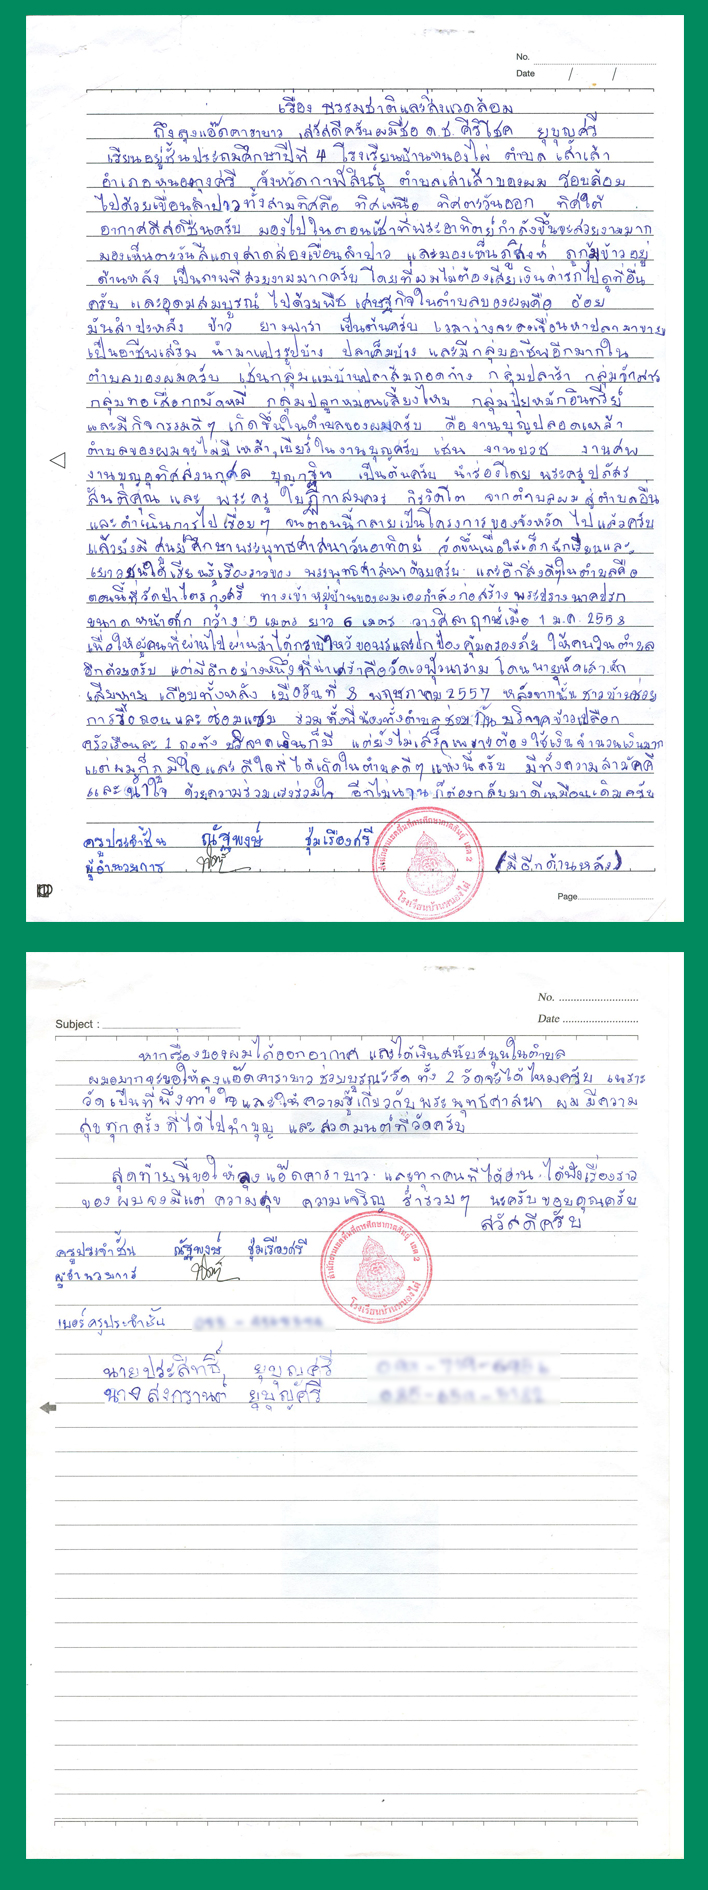 No.
Date / /
เรื่อง ธรรมชาติและสิ่งแวดล้อม
ถึงลุงแอ๊ดคาราบาว สวัสดีครับผมชื่อ ด.ช. ศิริโชค ยุบุญศรี
เรียนอยู่ชั้นประถมศึกษาปีที่ 4 โรงเรียนบ้านหนองไผ่ ตำบล เสาเล้า
อำเภอหนองกุงศรี จังหวัดกาฬสินธุ์ ตำบลเสาเล้าของผม รอบล้อม
ไปด้วยเขื่อนลำปาว ทั้งสามทิศคือ ทิศเหนือ ทิศตะวันออก ทิศใต้
อากาศสดชื่นครับ มองไปในตอนเช้าที่พระอาทิตย์กำลังขึ้นจะสวยงามมาก
มองเห็นตะวันสีแดงสาดส่องเขื่อนลำปาว และมองเห็นภูสิงห์ ภูกุ้มข้าวอยู่
ด้านหลัง เป็นภาพที่สวยงามมากครับ โดยที่ผมไม่ต้องเสียเงินค่ารถไปดูที่อื่น
ครับ และอุดมสมบูรณ์ ไปด้วยพืช เศรษฐกิจในตำบลของผมคือ อ้อย
มันสำปะหลัง ข้าว ยางพารา เป็นต้นครับ เวลาว่างจะลงเขื่อนหาปลามาขาย
เป็นอาชีพเสริม นำมาแปรรูปบ้าง ปลาเค็มบ้าง และมีกลุ่มอาชีพอีกมากใน
ตำบลของผมครับ เช่นกลุ่มแม่บ้านปลาส้มถอดก้าง กลุ่มปลาร้า กลุ่มจักสาน
กลุ่มทอเสื่อกกมัดหมี่ กลุ่มปลูกหม่อนเลี้ยงไหม กลุ่มปุ๋ยหมักอินทรีย์
และมีกิจกรรมดีๆ เกิดขึ้นในตำบลของผมครับ คืองานบุญปลอดเหล้า
ตำบลของผมจะไม่มีเหล้า,เบียร์ในงานบุญครับ เช่น งานบวช งานศพ
งานบุญอุทิศส่วนกุศล บุญกฐิน เป็นต้นครับ นำร่องโดย พระครูปภัสร
สันติคุณ และ พระครู ใบฎีกาสมควร ถิรจิตโต จากตำบลผม สู่ตำบลอื่น
และดำเนินการไปเรื่อยๆ จนตอนนี้กลายเป็นโครงการของจังหวัด ไปแล้วครับ
แล้วยังมี ศูนย์ศึกษาพระพุทธศาสนาวันอาทิตย์ จัดขึ้นเพื่อให้เด็กนักเรียนและ
เยาวชนได้เรียนรู้เรื่องราวของ พระพุทธศาสนาด้วยครับ และอีกสิ่งดีๆในตำบลคือ
ตอนนี้ที่วัดป่าไตรกุงศรี ทางเข้าหมู่บ้านของผมเองกำลังก่อสร้าง พระปรางนาคปรก
ขนาด หน้าตัก กว้าง 5 เมตร ยาว 6 เมตร วางศิลาฤกษ์เมื่อ 1 ม.ค. 2558
เพื่อให้ผู้คนที่ผ่านไปผ่านมาได้กราบไหว้ ขอพรและปกป้องคุ้มครองภัย ให้คนในตำบล
อีกด้วยครับ แต่มีอีกอย่างหนึ่งที่น่าเศร้าคือวัดเวฬุวนาราม โดนพายุพัดเสาหัก
เสียหาย เกือบทั้งหลัง เมื่อวันที่ 8 พฤษภาคม 2557 หลังจากนั้น ชาวบ้านช่วย
การรื้อถอนและซ่อมแซม รวมทั้งพี่น้องทั้งตำบลช่วยกัน บริจาคข้าวเปลือก
ครัวเรือนละ 1 ถุงถัง บริจาคเงินก็มี แต่ยังไม่เสร็จเพราะต้องใช้เงินจำนวนเงินมาก
แต่ผมก็ภูมิใจและดีใจที่ได้เกิดในตำบลดีๆ แห่งนี้ครับ มีทั้งความสามัคคี
และน้ำใจ ด้วยความร่วมแรงร่วมใจ อีกไม่นานก็ต้องกลับมาดีเหมือนเดิมครับ
ครูประจำชั้น ณัฐพงษ์ ชุ่มเรืองศรี
ผู้อำนวยการ
(มีอีกด้านหลัง)
สำนักงานเขตพื้นที่การศึกษากาฬสินธุ์ เขต 2
โรงเรียนบ้านหนองไผ่
Page
No.
Subject :
Date
หากเรื่องของผมได้ออกอากาศ และได้เงินสนับสนุนในตำบล
ผมอยากจะขอให้ลุงแอ๊ดคาราบาว ช่วยบูรณะวัด ทั้ง 2 วัดจะได้ไหมครับ เพราะ
วัดเป็นที่พึ่งทางใจและให้ความรู้เกี่ยวกับพระพุทธศาสนา ผมมีความ
สุขทุกครั้งที่ได้ไปทำบุญ และสวดมนต์ที่วัดครับ
สุดท้ายนี้ขอให้ลุงแอ๊ดคาราบาว และทุกคนที่ได้อ่าน ได้ฟังเรื่องราว
ของผมจงมีแต่ ความสุข ความเจริญ ร่ำรวยๆ นะครับขอบคุณครับ
สวัสดีครับ
ครูประจำชั้น ณัฐพงษ์ ชุ่มเรืองศรี
ผู้อำนวยการ
สำนักงานเขตพื้นที่การศึกษากาฬสินธุ์ เขต 2
โรงเรียนบ้านหนองไผ่
เบอร์ครูประจำชั้น
นายประสิทธิ์ ยุบุญศรี
นาง สงกรานต์ ยุบุญศรี